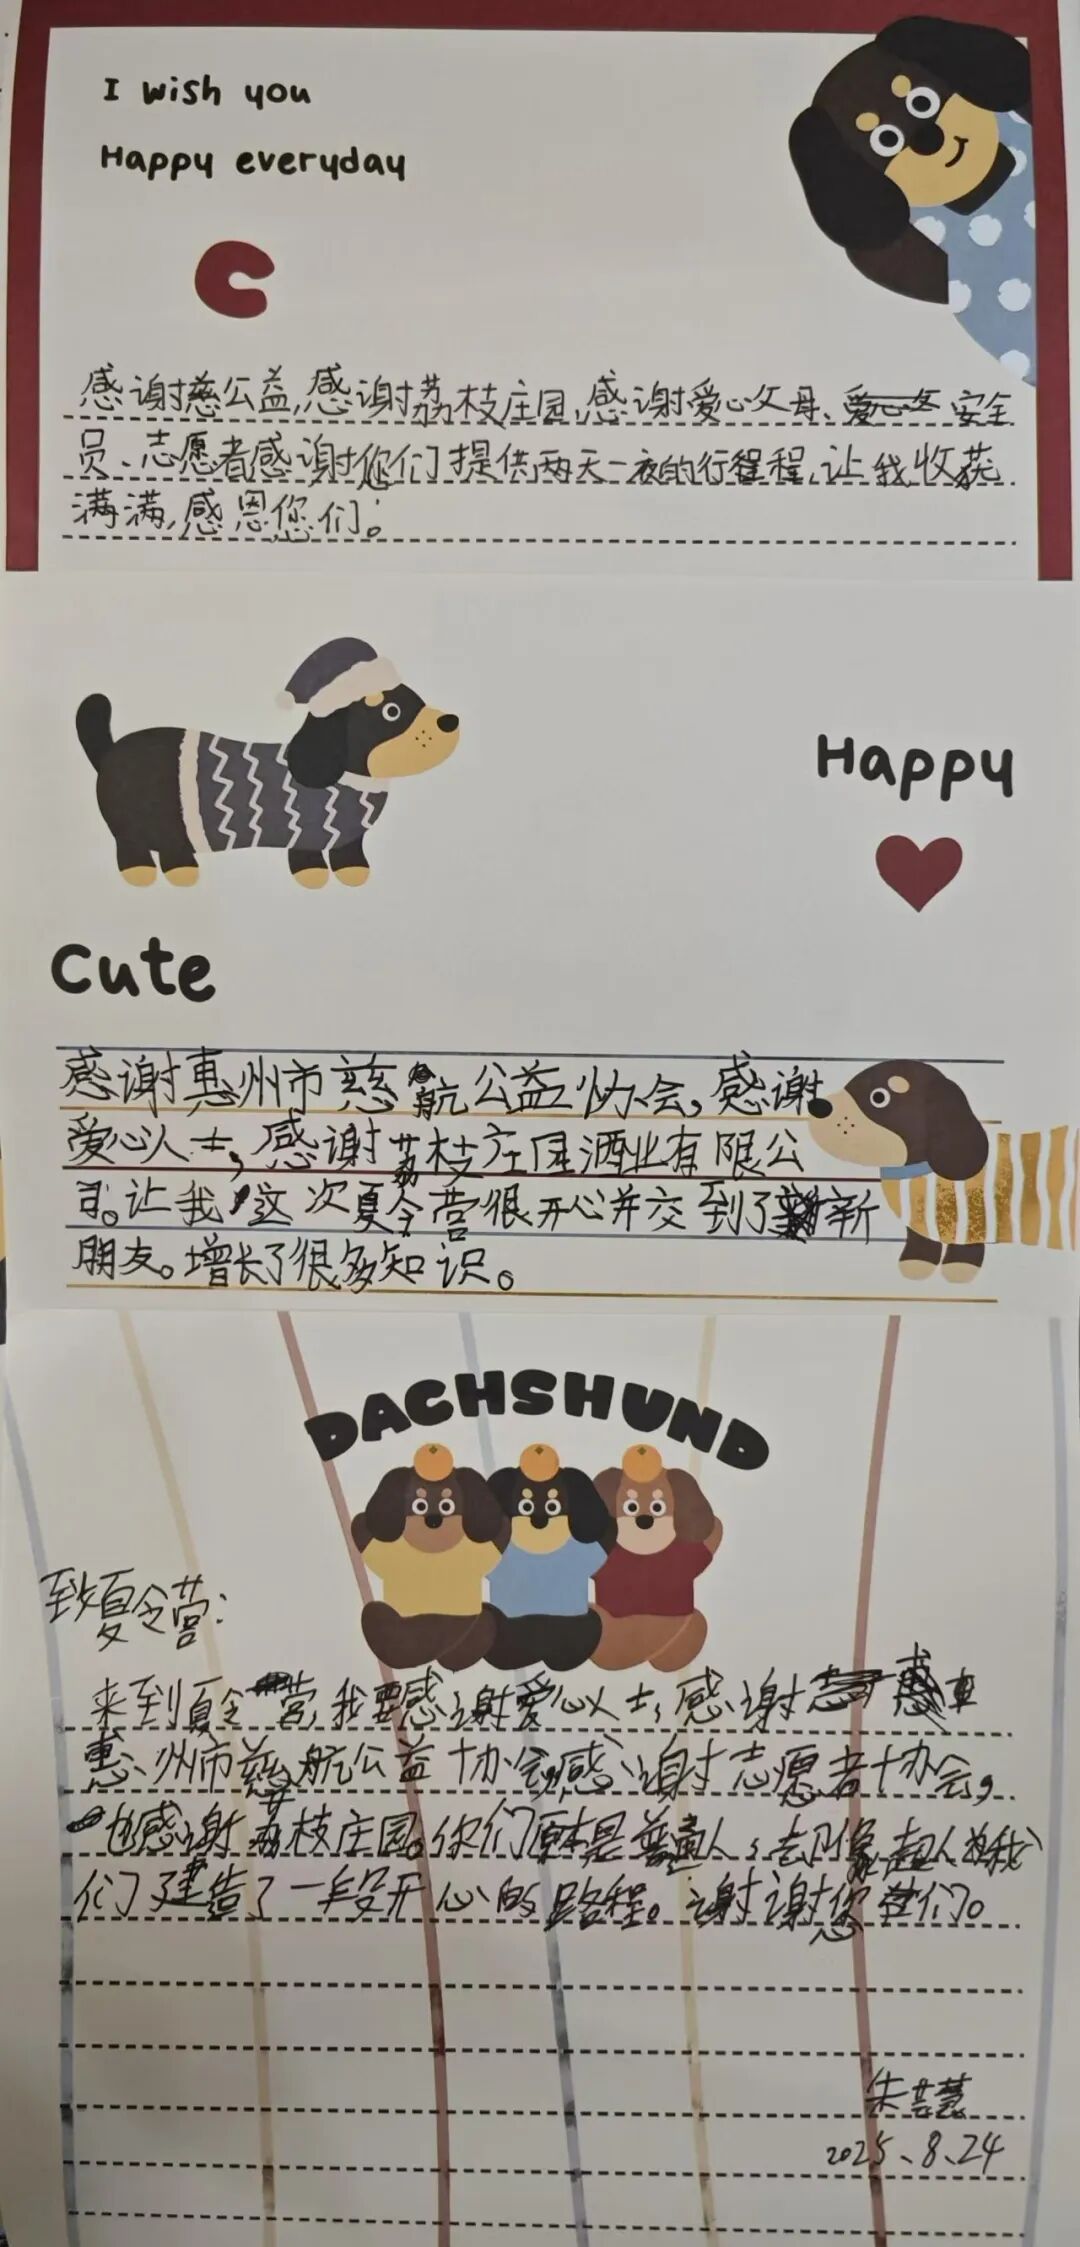 I wish you
Happy everyday
感谢慈公益,感谢荔枝庄园,感谢爱心父母、安全
员、志愿者感谢你们提供两天一夜的行程,让我收获
满满,感恩您们。
Happy
Cute
感谢惠州市慈航公益协会,感谢
爱心人士,感谢荔枝庄园酒业有限公
司。让我这次夏令营很开心并交到了新
朋友。增长了很多知识。
DACHSHUND
致夏令营:
来到夏令营,我要感谢爱心人士,感谢
惠州市慈航公益协会,感谢志愿者协会,
也感谢荔枝庄园。你们原本是普通人,却像超人为我
们建造了一段开心的路程。谢谢您们。
朱芸慧
2025、8、24